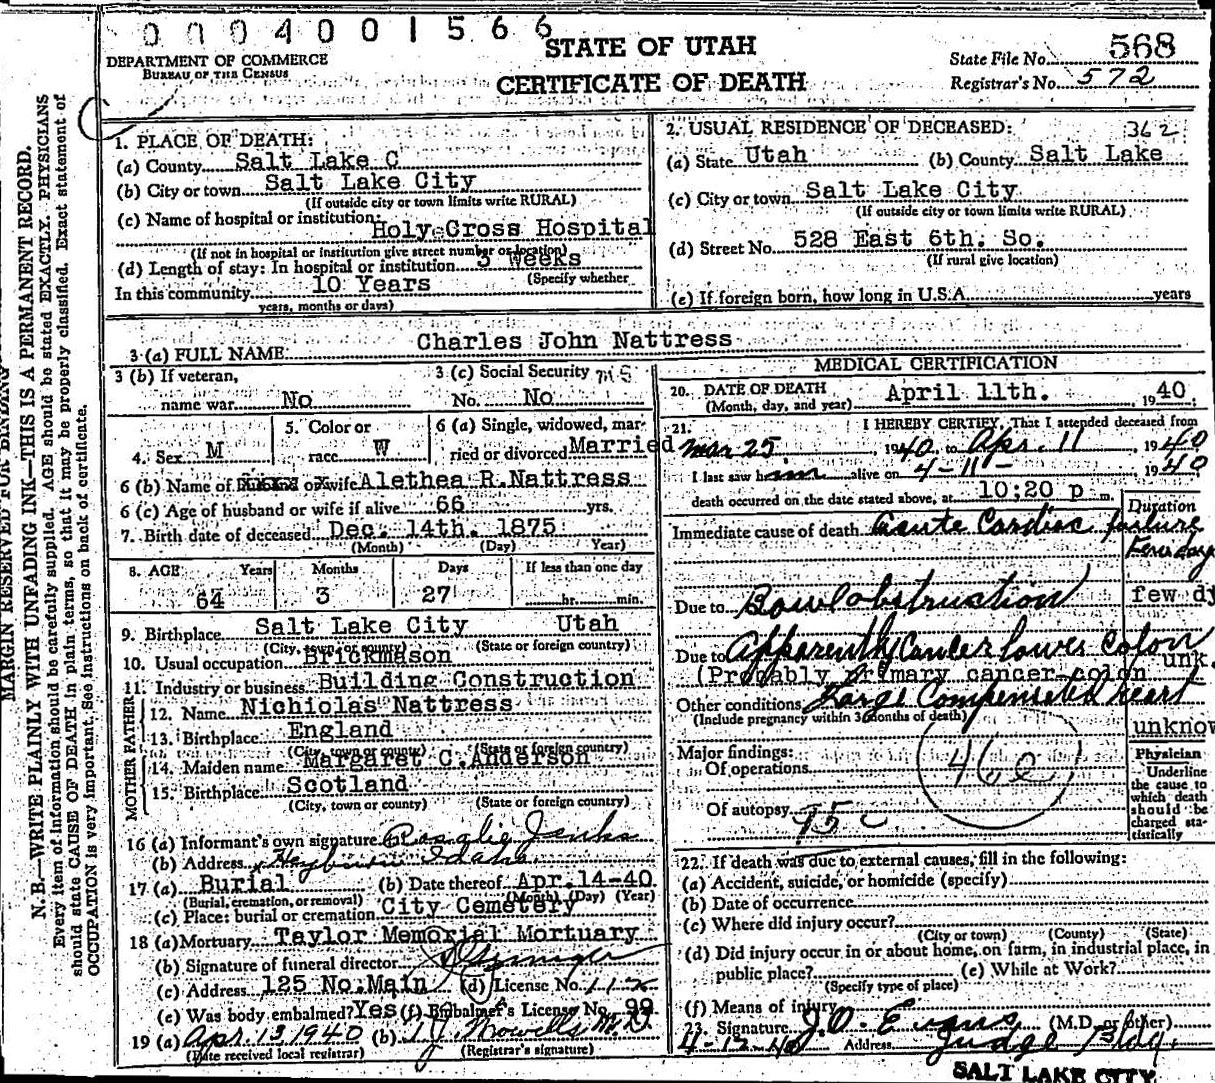 0004001566
STATE OF UTAH
CERTIFICATE OF DEATH
DEPARTMENT OF COMMERCE
BUREAU OF THE CENSUS
State File No. 568
Registrar's No. 572
MARGIN RESERVED FOR BINDING
N. B.—WRITE PLAINLY WITH UNFADING INK—THIS IS A PERMANENT RECORD.
Every item of information should be carefully supplied. AGE should be stated EXACTLY. PHYSICIANS
should state CAUSE OF DEATH in plain terms, so that it may be properly classified. Exact statement of
OCCUPATION is very important. See instructions on back of certificate.
1. PLACE OF DEATH:
(a) County Salt Lake C
(b) City or town Salt Lake City
(If outside city or town limits write RURAL)
(c) Name of hospital or institution:
Holy Cross Hospital
(If not in hospital or institution give street number or location)
(d) Length of stay: In hospital or institution 3 weeks
(Specify whether
In this community 10 Years
years, months or days)
2. USUAL RESIDENCE OF DECEASED: 362
(a) State Utah (b) County Salt Lake
(c) City or town Salt Lake City
(If outside city or town limits write RURAL)
(d) Street No. 528 East 6th. So.
(If rural give location)
(e) If foreign born, how long in U.S.A. years
3 (a) FULL NAME Charles John Nattress
3 (b) If veteran,
name war No
3 (c) Social Security
No. No
4. Sex M
5. Color or
race W
6 (a) Single, widowed, mar-
ried or divorced Married
6 (b) Name of or wife Alethea R. Nattress
6 (c) Age of husband or wife if alive 66 yrs.
7. Birth date of deceased Dec. 14th. 1875
(Month) (Day) Year)
8. AGE Years Months Days If less than one day
64 3 27 hr. min.
9. Birthplace Salt Lake City Utah
(City, town or county) (State or foreign country)
10. Usual occupation Brickmason
11. Industry or business Building Construction
MOTHER FATHER
12. Name Nichiolas Nattress
13. Birthplace England
(City, town or county) (State or foreign country)
14. Maiden name Margaret C. Anderson
15. Birthplace Scotland
(City, town or county) (State or foreign country)
16 (a) Informant's own signature Rosalie Jenks
(b) Address Heyburn Idaho
17 (a) Burial (b) Date thereof Apr. 14-40
(Burial, cremation, or removal) (Month) (Day) (Year)
(c) Place: burial or cremation City Cemetery
18 (a) Mortuary Taylor Memorial Mortuary
(b) Signature of funeral director
(c) Address 125 No. Main (d) License No. 112
(e) Was body embalmed? Yes (f) Embalmer's License No. 99
19 (a) Apr. 13 1940 (b) M.D.
(Date received local registrar) (Registrar's signature)
MEDICAL CERTIFICATION
20. DATE OF DEATH
(Month, day, and year) April 11th. 1940;
21. I HEREBY CERTIFY, That I attended deceased from
Mar 25, 1940, to Apr. 11, 1940
I last saw him alive on 4-11- 1940
death occurred on the date stated above, at 10:20 p m.
Duration
Immediate cause of death Acute Cardiac failure
Few days
Due to Bowel obstruction few dy
Due to Apparently Cancer lower colon
(Probably primary cancer colon unk.
Other conditions Large Compensated heart
(Include pregnancy within 3 months of death)
unknow
Major findings:
Of operations
46e
Of autopsy
95c
Physician
Underline
the cause to
which death
should be
charged sta-
tistically
22. If death was due to external causes, fill in the following:
(a) Accident, suicide, or homicide (specify)
(b) Date of occurrence
(c) Where did injury occur?
(City or town) (County) (State)
(d) Did injury occur in or about home, on farm, in industrial place, in
public place? (e) While at Work?
(Specify type of place)
(f) Means of injury
23. Signature J.O. Evans (M.D. or other)
4-12-40 Address Judge Bldg.
SALT LAKE CITY